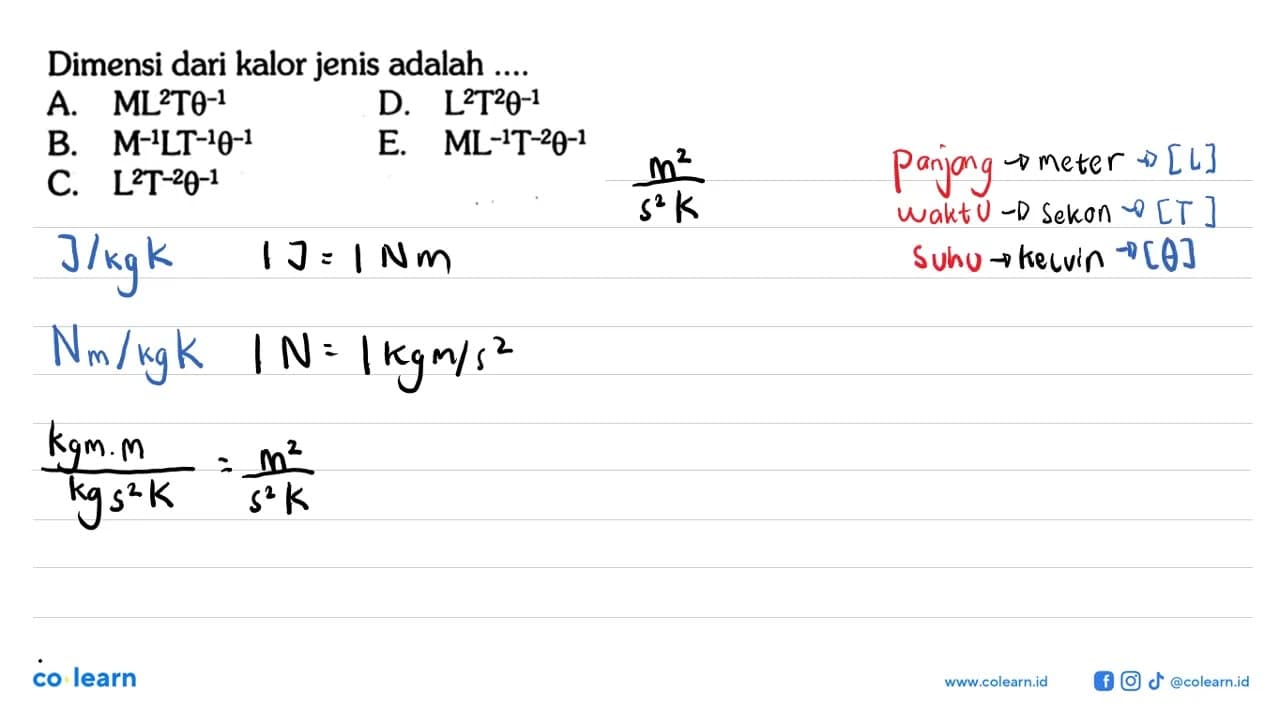 Dimensi dari kalor jenis adalah ....
A. ML²Tθ⁻¹
B. M⁻¹LT⁻¹θ⁻¹
C. L²T⁻²θ⁻¹
D. L²T²θ⁻¹
E. ML⁻¹T⁻²θ⁻¹
m²/s²K
Panjang → meter → [L]
waktu → sekon → [T]
Suhu → kelvin → [θ]
J/kgK 1 J = 1 Nm
Nm/kgK 1 N = 1 kgm/s²
kgm.m/kgs²K = m²/s²K
co learn
www.colearn.id @colearn.id